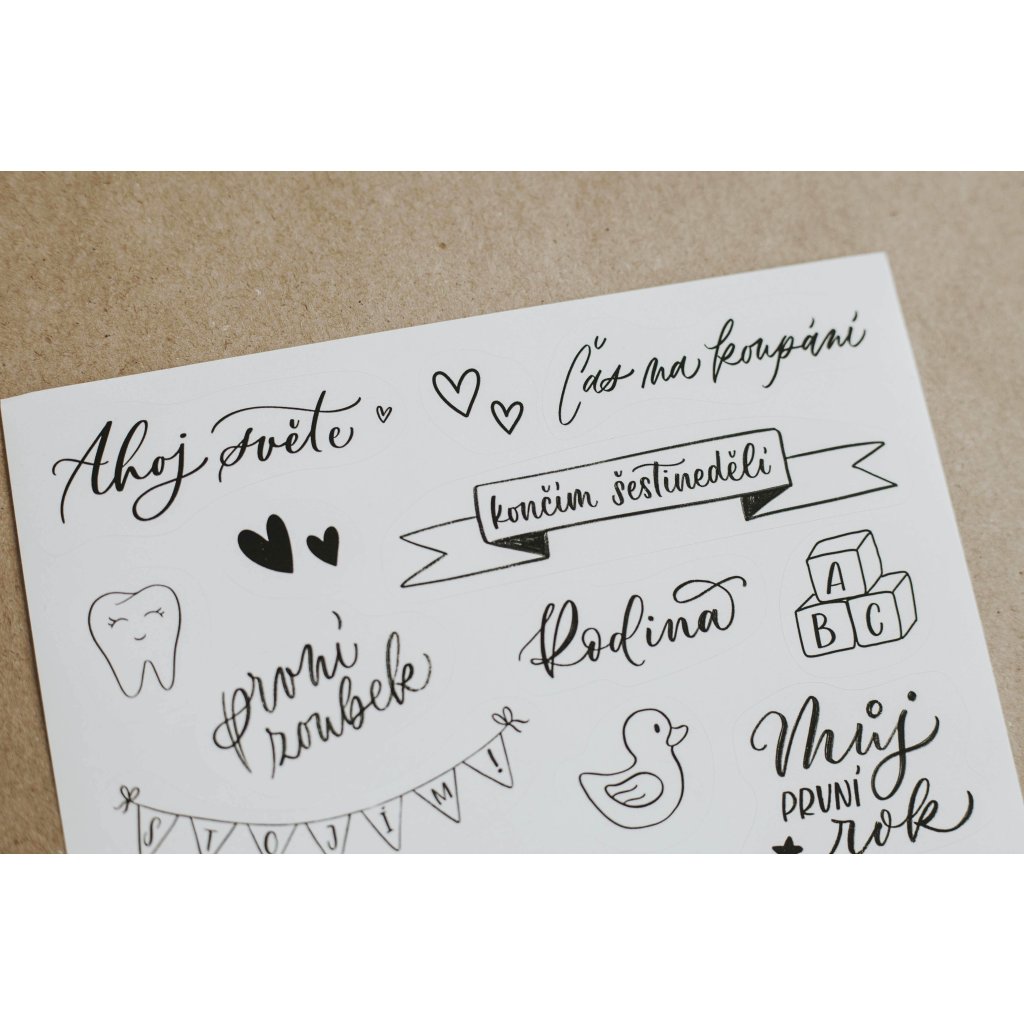 Ahoj světe
Čas na koupání
končím šestinedělí
A
B C
Rodina
první
zoubek
STOJÍM!
Můj
PRVNÍ
rok